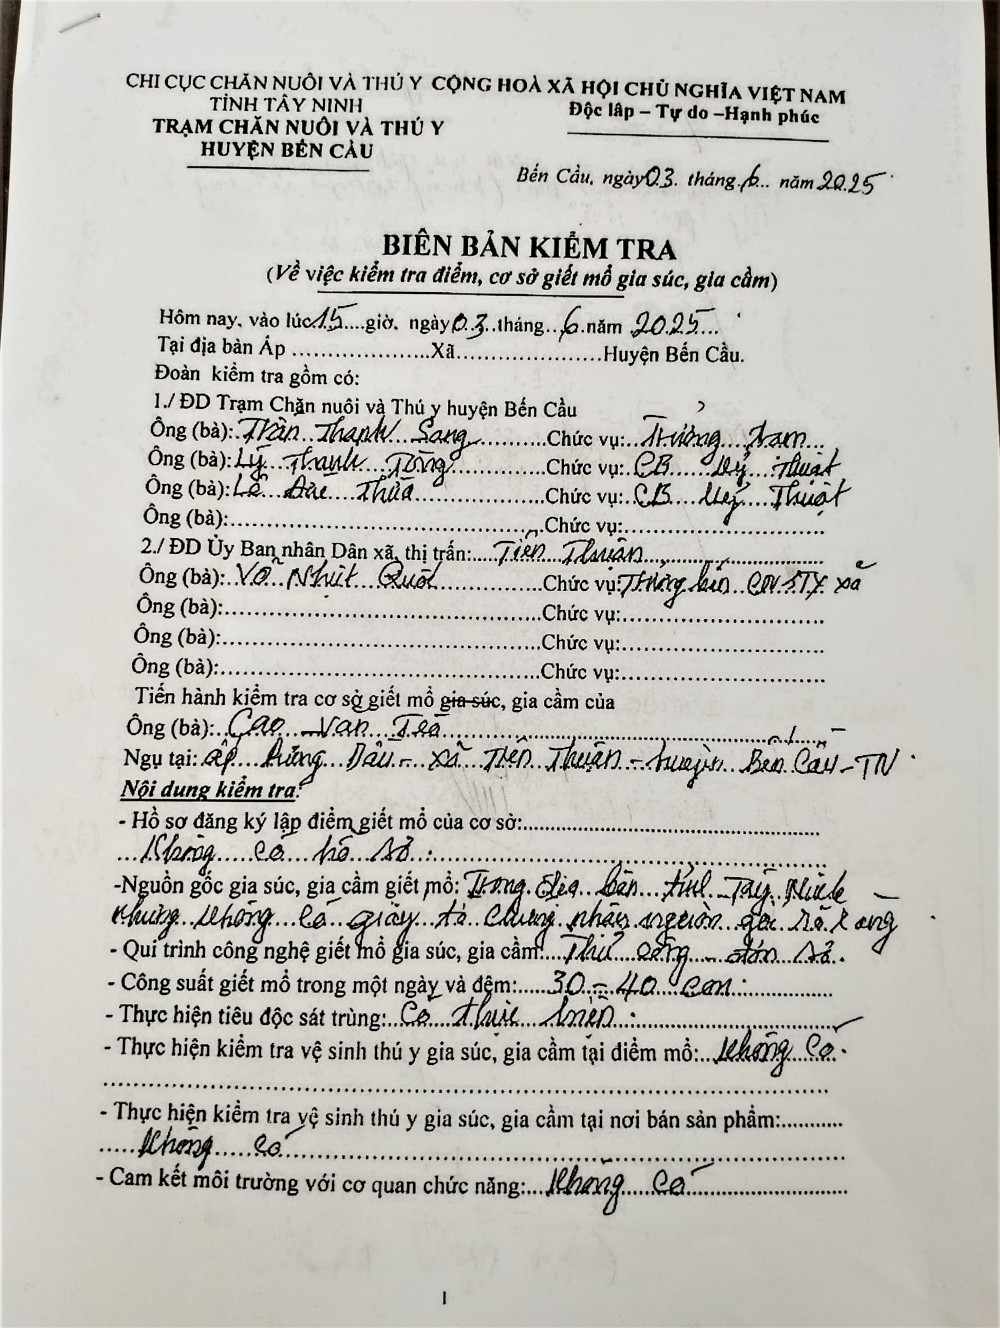 CHI CỤC CHĂN NUÔI VÀ THÚ Y CỘNG HOÀ XÃ HỘI CHỦ NGHĨA VIỆT NAM
TỈNH TÂY NINH Độc lâp – Tự do –Hạnh phúc
TRẠM CHĂN NUÔI VÀ THÚ Y
HUYỆN BẾN CẦU
Bến Cầu, ngày 03. tháng.6.. năm 2025
BIÊN BẢN KIỂM TRA
(Về việc kiểm tra điểm, cơ sở giết mổ gia súc, gia cầm)
Hôm nay, vào lúc 15....giờ, ngày 03..tháng..6.năm 2025...
Tại địa bàn Ấp ....................Xã.....................Huyện Bến Cầu.
Đoàn kiểm tra gồm có:
1./ ĐD Trạm Chăn nuôi và Thú y huyện Bến Cầu
Ông (bà):.Trần Thanh Sang...........Chức vụ:..Trưởng trạm...
Ông (bà):Lý Thanh Tòng..............Chức vụ:..CB kỹ thuật
Ông (bà):Lê Đức Thừa...................Chức vụ:..CB kỹ Thuật
Ông (bà):.............................................Chức vụ:.............................
2./ ĐD Ủy Ban nhân Dân xã, thị trấn:....Tiên Thuận...........................
Ông (bà):Võ Nhựt Quốc...............Chức vụ:Trưởng ban CNTY xã
Ông (bà):.............................................Chức vụ:.............................
Ông (bà):.............................................Chức vụ:.............................
Ông (bà):.............................................Chức vụ:.............................
Tiến hành kiểm tra cơ sở giết mổ gia súc, gia cầm của
Ông (bà):..Cao Văn .......................................................
Ngụ tại: ấp Rừng Dầu – xã Tiên Thuận – huyện Bến Cầu – TN
Nội dung kiểm tra:
- Hồ sơ đăng ký lập điểm giết mổ của cơ sở:..................................................
...Không có hồ sơ.................................................................
-Nguồn gốc gia súc, gia cầm giết mổ: Trong địa bàn tỉnh Tây Ninh
nhưng không có giấy tờ chứng nhận nguồn gốc rõ ràng
- Qui trình công nghệ giết mổ gia súc, gia cầm:...Thủ công – đơn sơ.
- Công suất giết mổ trong một ngày và đêm:....30 – 40 con...............
- Thực hiện tiêu độc sát trùng: Có thực hiện................................
- Thực hiện kiểm tra vệ sinh thú y gia súc, gia cầm tại điểm mổ:..Không có.
..........................................................................................................
- Thực hiện kiểm tra vệ sinh thú y gia súc, gia cầm tại nơi bán sản phẩm:..........
.....Không có..........................................................................................
- Cam kết môi trường với cơ quan chức năng:...Không có........................
1